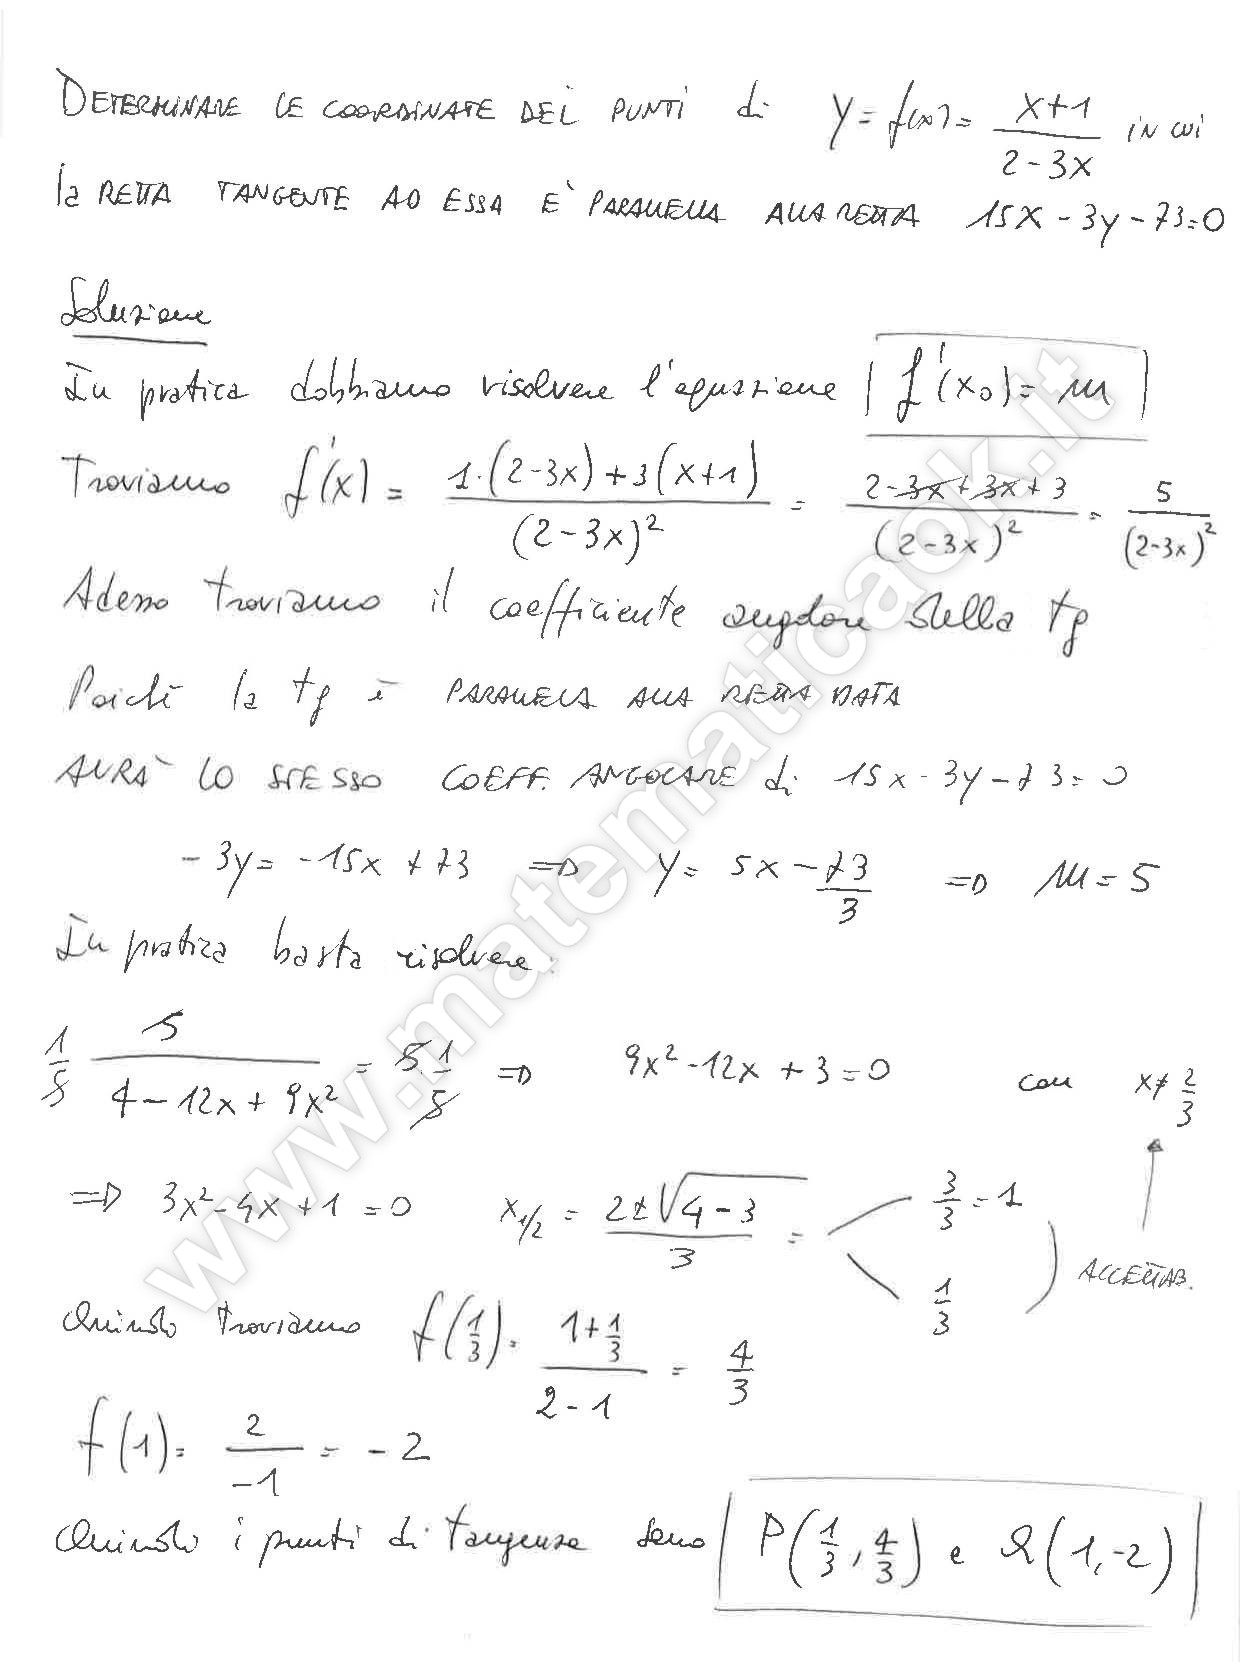 DETERMINARE LE COORDINATE DEI PUNTI di y = f(x) = (x+1)/(2-3x) in cui
la RETTA TANGENTE AD ESSA E' PARALLELA ALLA RETTA 15x - 3y - 73 = 0
Soluzione
In pratica dobbiamo risolvere l'equazione f'(x₀) = m
Troviamo f'(x) = (1·(2-3x)+3(x+1))/(2-3x)² = (2-3x+3x+3)/(2-3x)² = 5/(2-3x)²
Adesso troviamo il coefficiente angolare della tg
Poiché la tg è PARALLELA ALLA RETTA DATA
AVRA' LO STESSO COEFF. ANGOLARE di 15x - 3y - 73 = 0
-3y = -15x + 73 => y = 5x - 73/3 => m = 5
In pratica basta risolvere:
1/5 · 5/(4-12x+9x²) = 5 · 1/5 => 9x² - 12x + 3 = 0 con x ≠ 2/3
=> 3x² - 4x + 1 = 0 x₁/₂ = (2±√(4-3))/3 = 3/3 = 1
1/3
ACCETTAB.
Quindi troviamo f(1/3) = (1+1/3)/(2-1) = 4/3
f(1) = 2/-1 = -2
Quindi i punti di tangenza sono P(1/3, 4/3) e Q(1,-2)
www.matematicaok.it